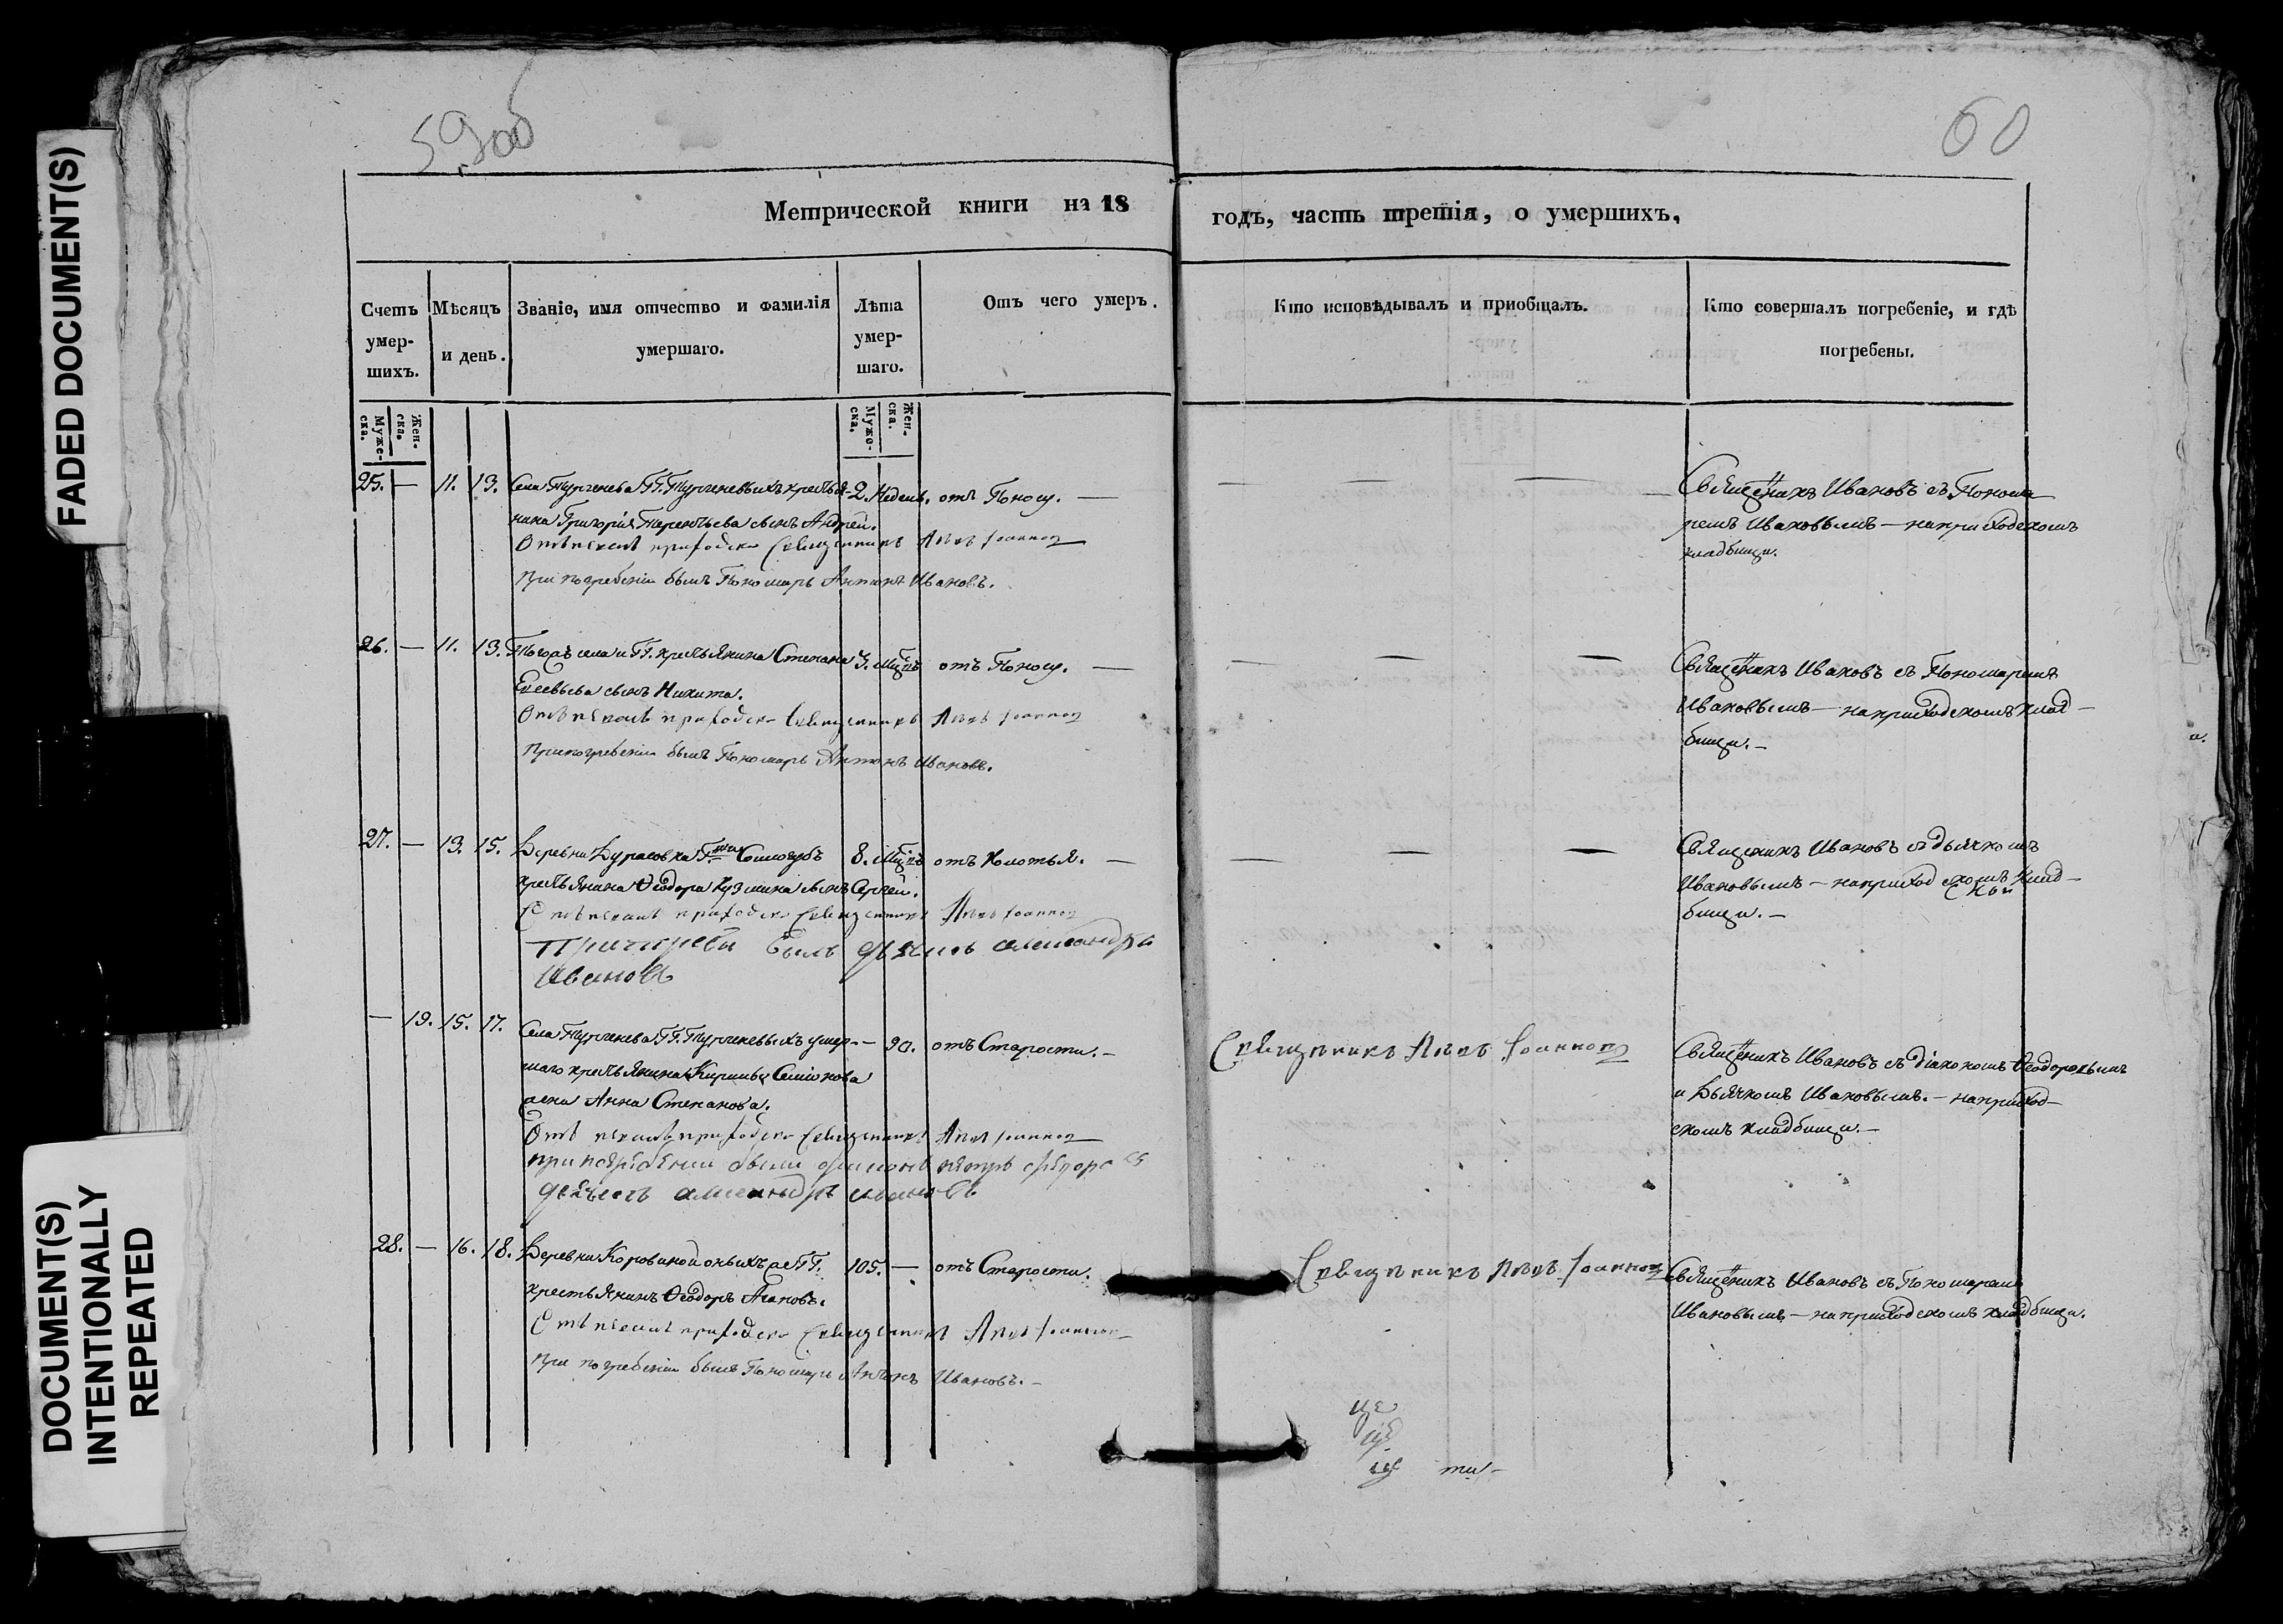 FADED DOCUMENT(S)
DOCUMENT(S)
INTENTIONALLY
REPEATED
59 об
60
Метрической книги на 18
годъ, часть третія, о умершихъ,
Счетъ умер-шихъ.
Мѣсяцъ и день.
Званіе, имя отчество и фамилія умершаго.
Лѣта умер-шаго.
Отъ чего умеръ.
Кто исповѣдывалъ и пріобщалъ.
Кто совершалъ погребеніе, и гдѣ погребены.
Муже-ска.
Жен-ска.
Муже-ска.
Жен-ска.
25. — 11. 13. Села Тургенева ГГ. Тургеневыхъ крестья- 2. Недель. отъ Поносу. —
нина Григорія Терентьева сынъ Андрей.
Отпѣвалъ приходск Священникъ Левъ Іоанновъ
При погребеніи былъ Пономарь Антонъ Ивановъ.
Священникъ Ивановъ съ Понома
ремъ Ивановымъ — на приходскомъ
кладбищи.
26. — 11. 13. Тогожъ села и ГГ. крестьянина Степана 3. Мцъ отъ Поносу. —
Евсевьева сынъ Никита.
Отпѣвалъ приходск Священникъ Левъ Іоанновъ
При погребеніи былъ Пономарь Антонъ Ивановъ.
Священникъ Ивановъ съ Пономаремъ
Ивановымъ — на приходскомъ клад-
бищи. —
27. — 13. 15. Деревни Дурасовка Соллогубъ 8. Мцъ отъ Колотья. —
крестьянина Ѳеодора Кузмина сынъ Сергей.
Отпѣвалъ приходск Священникъ Левъ Іоанновъ
При погреби былъ дьячокъ александръ
Ивановъ
Священникъ Ивановъ съ дьячкомъ
Ивановымъ — на приходскомъ клад-
бищи. —
— 19. 15. 17. Села Тургенева ГГ. Тургеневыхъ умер- — 90. отъ Старости. —
шаго крестьянина Кирилы Семіонова
жена Анна Степанова.
Отпѣвалъ приходск Священникъ Левъ Іоанновъ
при погребении были диаконъ петръ федоровъ
дьячокъ александръ ивановъ
Священникъ Левъ Іоанновъ
Священникъ Ивановъ съ діакономъ Ѳеодоровымъ
и Дьячкомъ Ивановымъ. — на приход-
скомъ кладбищи. —
28. — 16. 18. Деревни Коровиной оныхъ же ГГ. 105. — отъ Старости.
крестьянинъ Ѳеодоръ Агаповъ.
Отпѣвалъ приходск Священникъ Левъ Іоанновъ
При погребеніи былъ Пономарь Антонъ Ивановъ. —
Священникъ Левъ Іоанновъ
Священникъ Ивановъ съ Пономаремъ
Ивановымъ — на приходскомъ кладбищи.